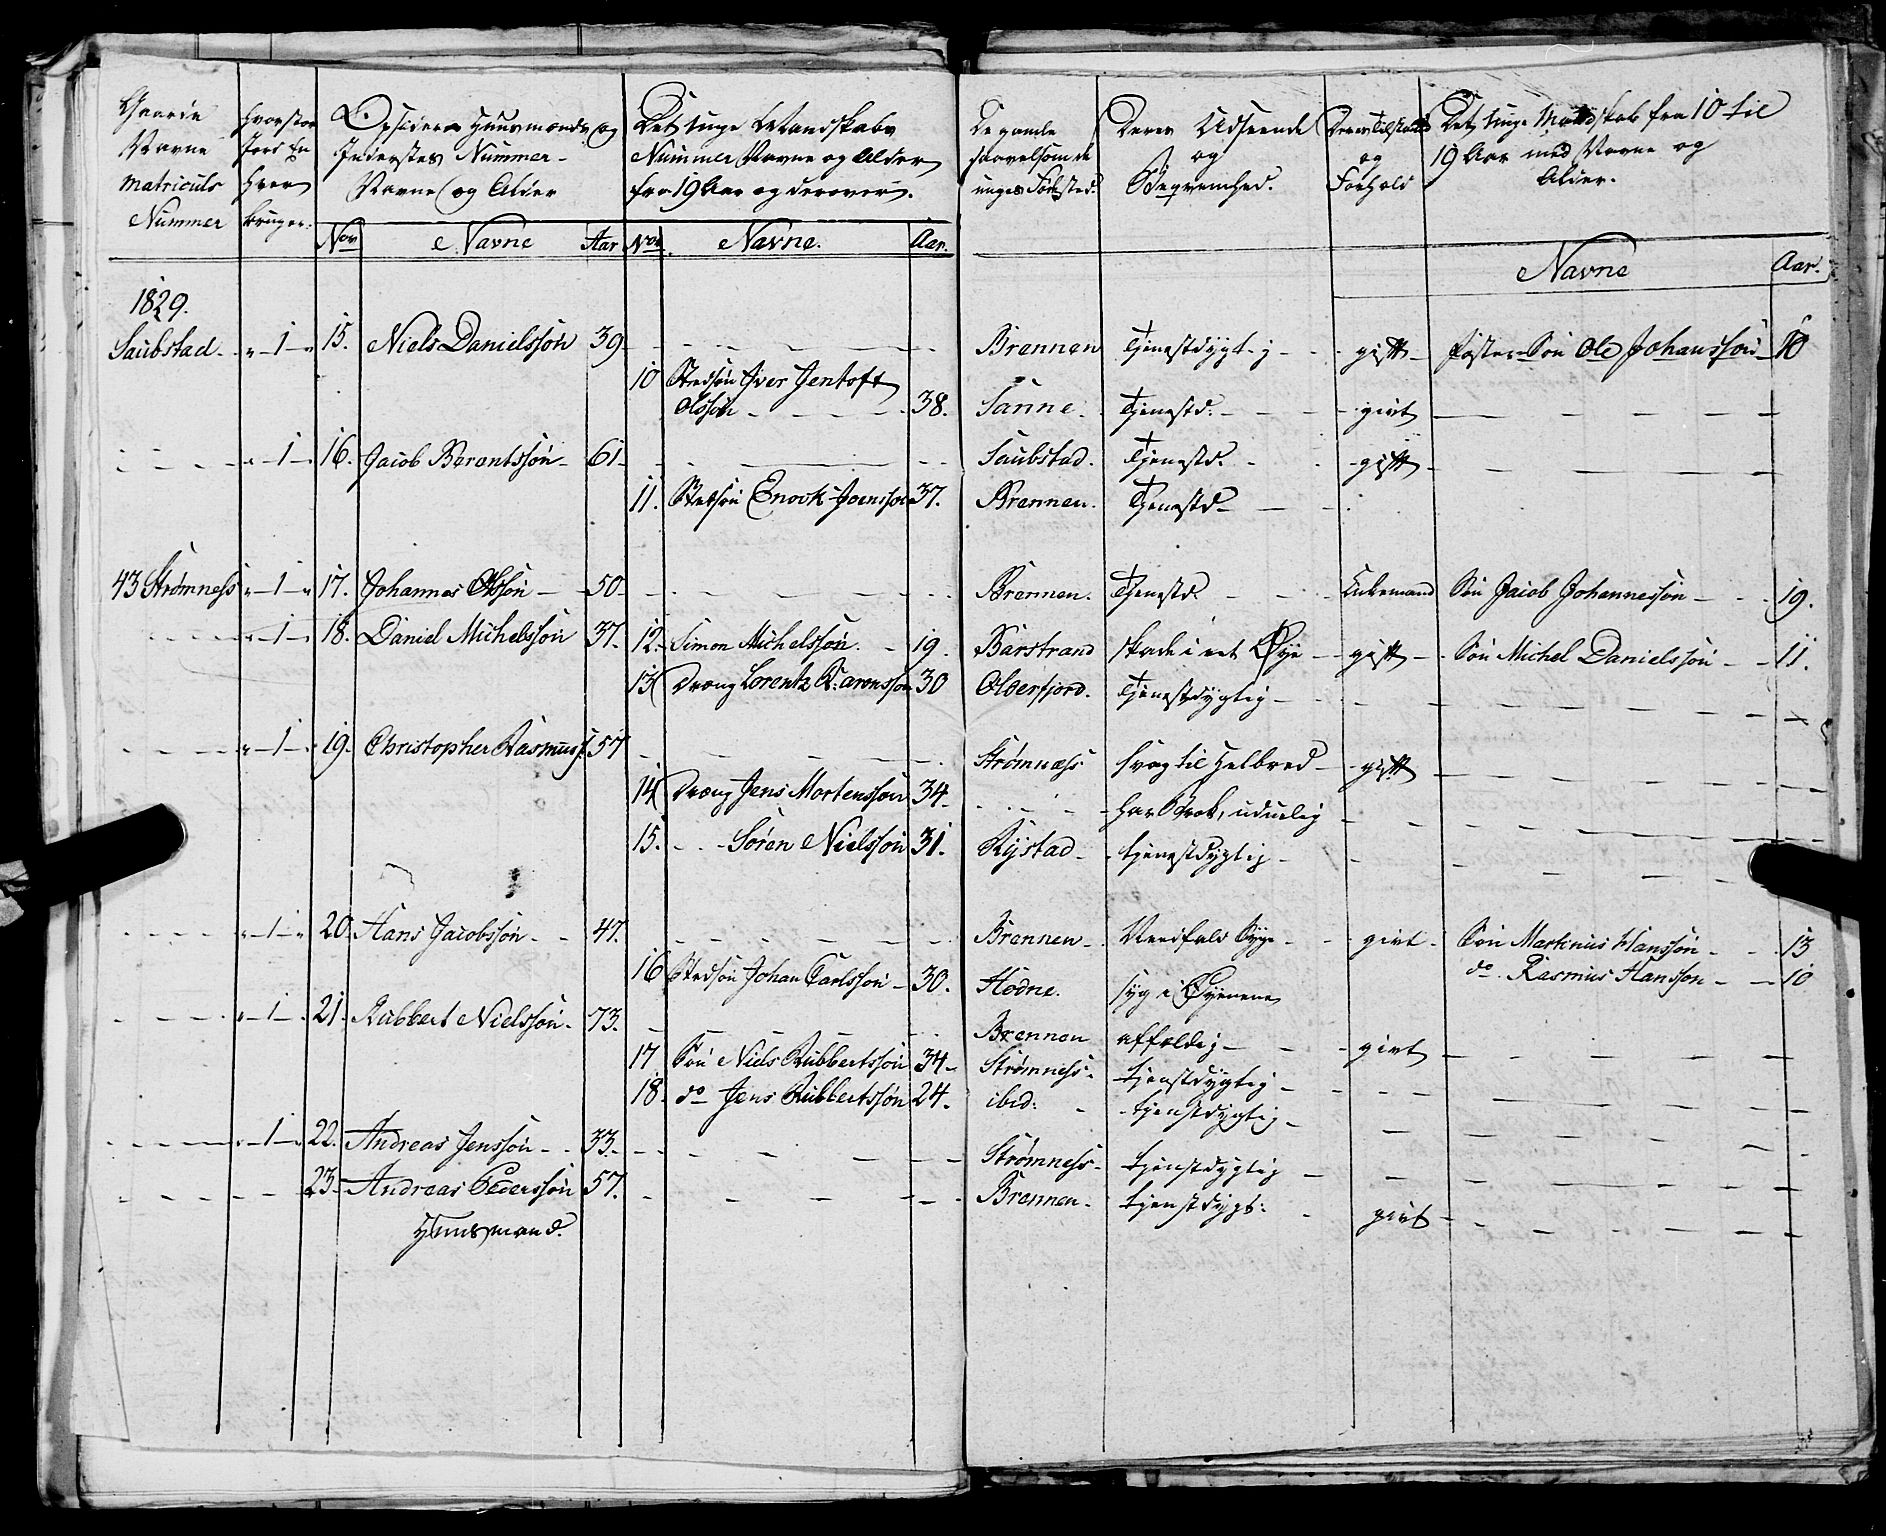 Gaarde Navne Matriculs Nummer
Hvor stor Jord En hver bruger.
Opsiddere Huusmænds og Inderstes Nummer Navne og Alder
Det unge Mandskabs Nummer Navne og Alder fra 19 Aar og derover.
De gamle saavelsom de unges Fødested.
Deres Udseende og Beqvemhed.
Deres Tilstand og Forhold
Det unge Mandskab fra 10 til 19 Aar med Navne og Alder.
Nor Navne Aar Nor Navne. Aar. Navne Aar.
1829.
Saubstad - 1 - 15. Niels Danielssøn 39 Brennen Tjenestdygtig gift Foster-Søn Ole Johanssøn 10
10 Stedsøn Iver Jentoft
Olssøn 38. Sanne. Tjenestd. givt
- 1 - 16. Jacob Berentssøn 61 Saubstad. Tjenestd. gift
11. Stedsøn Enock Joenssøn 37. Brennen. Tjenestd
43 Strømness - 1 - 17. Johannes Olssøn 50 Brennen. Tjenestd. Enkemand Søn Jacob Johannessøn 19.
- 1 - 18. Daniel Michelssøn 37. 12. Simon Michelssøn. 19. Barstrand skade i eet Øye gift Søn Michel Danielssøn 11.
13 Dreng Lorentz Aronssøn 30 Olderfjord. Tjenestdygtig
- 1 - 19. Christopher Rasmuss. 57 Strømnæss svag til Helbred gift
14 Dreng Jens Mortenssøn 34 har Brok, uduelig
15. Søren Nielssøn 31. Rystad tjenestdygtig
- 1 - 20. Hans Jacobssøn 47. Brennen Needfalds Syge givt Søn Martinus Hanssøn 13
16 Stedsøn Johan Carlssøn 30. Hodne. syg i Øyenene do. Rasmus Hanssøn 10
- 1 - 21. Rubbert Nielssøn 73. Brennen affældig givt
17 Søn Niels Rubbertssøn 34 Strømness tjenstdygtig
18. do Jens Rubbertssøn 24. ibid: tjenstdygtig
- 1 - 22. Andreas Jenssøn 33. Strømness tjenstdygtig
23. Andreas Pederssøn 57. Brennen tjenstdygt: givt
Huusmand.